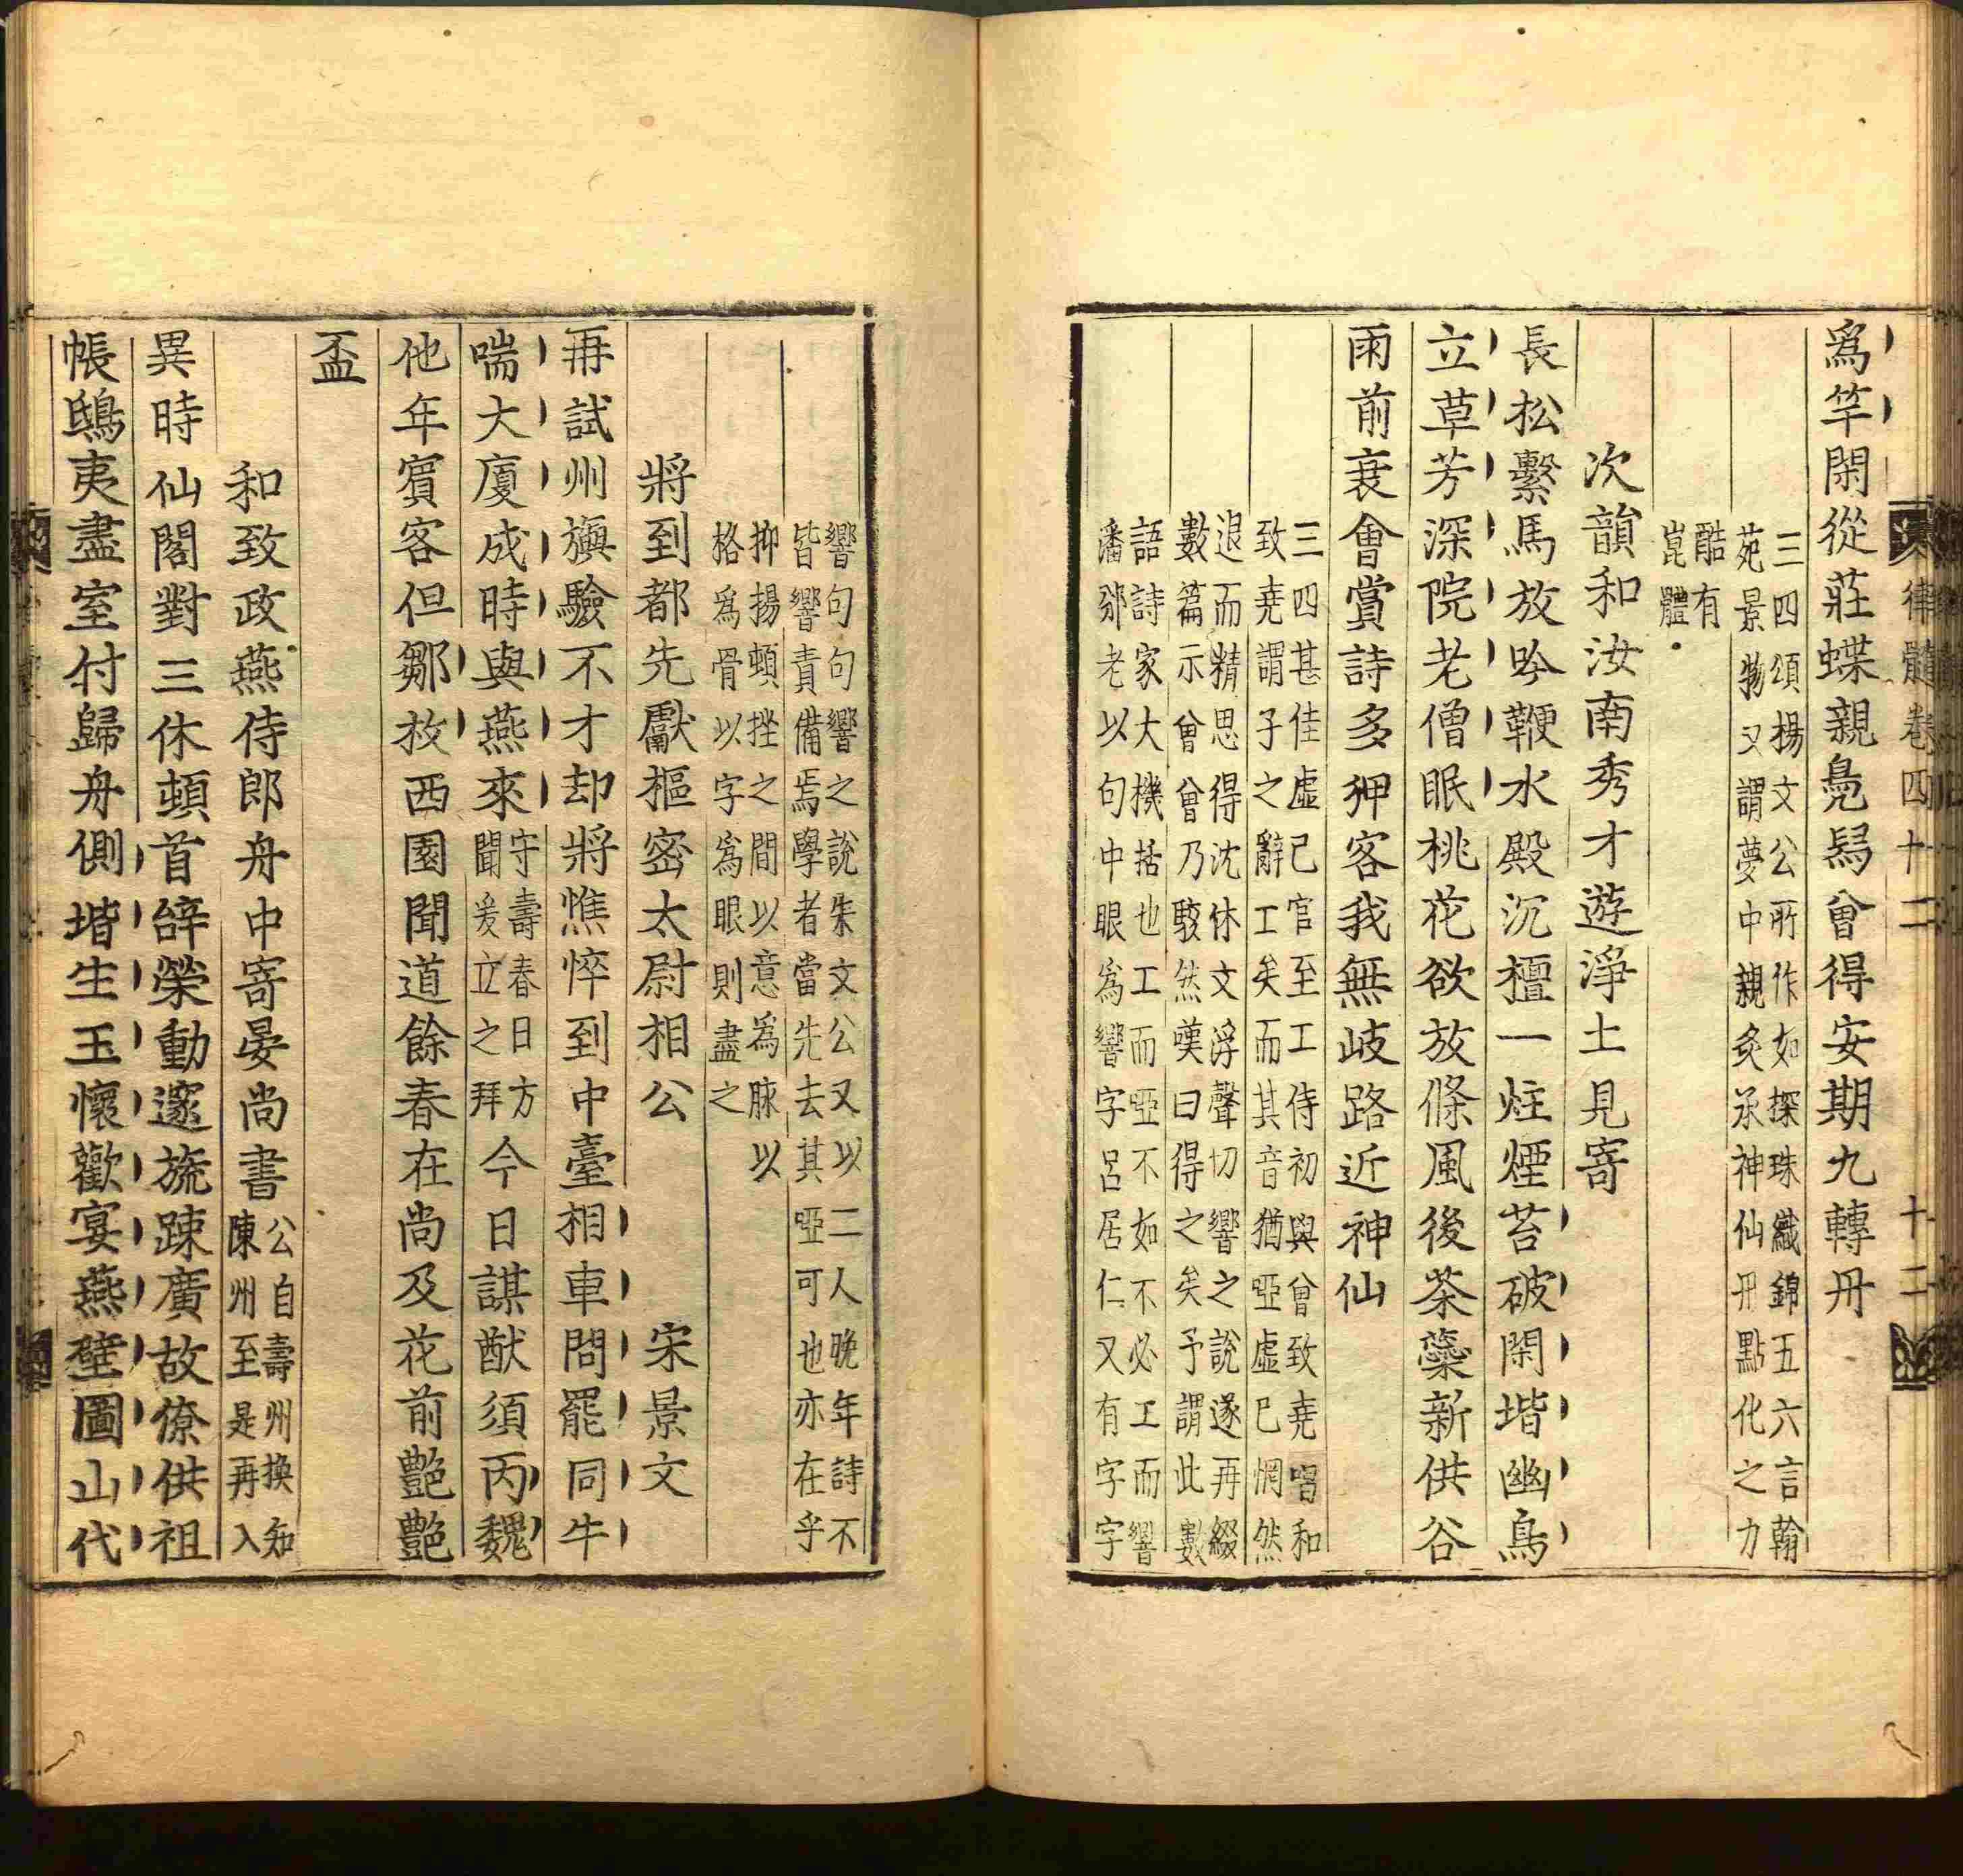 律髓卷四十二 十二
爲竿閑從莊蝶親鳧舄曾得安期九轉丹
三四頌揚文公所作如探珠纖錦五六言翰
苑景物又謂夢中親炙承神仙丹點化之力
酷有
崑體
次韻和汝南秀才遊淨土見寄
長松繫馬放吟鞭水殿沉檀一炷煙苔破閑堦幽鳥
立草芳深院老僧眠桃花欲放條風後茶蘂新供谷
雨前衰會賞詩多狎客我無岐路近神仙
三四甚佳虛已官至工侍初與曾致堯唱和
致堯謂子之辭工矣而其音猶啞虛已惘然
退而精思得沈休文浮聲切響之說遂再綴
數篇示曾曾乃駭然嘆曰得之矣予謂此數
語詩家大機括也工而啞不如不必工而響
潘邠老以句中眼爲響字呂居仁又有字字
響句句響之說朱文公又以二人晚年詩不
皆響責備焉學者當先去其啞可也亦在乎
抑揚頓挫之間以意爲脉以
格爲骨以字爲眼則盡之
將到都先獻樞密太尉相公 宋景文
再試州旟驗不才却將憔悴到中臺相車問罷同牛
喘大廈成時與燕來守壽春日方今日謀猷須丙魏
聞爰立之拜
他年賓客但鄒枚西園聞道餘春在尚及花前艷艷
盃
和致政燕侍郎舟中寄晏尚書公自壽州換知
陳州至是再入
異時仙閣對三休頓首辭榮動邃旒踈廣故僚供祖
帳鴟夷盡室付歸舟側堦生玉懷歡宴燕壁圖山代